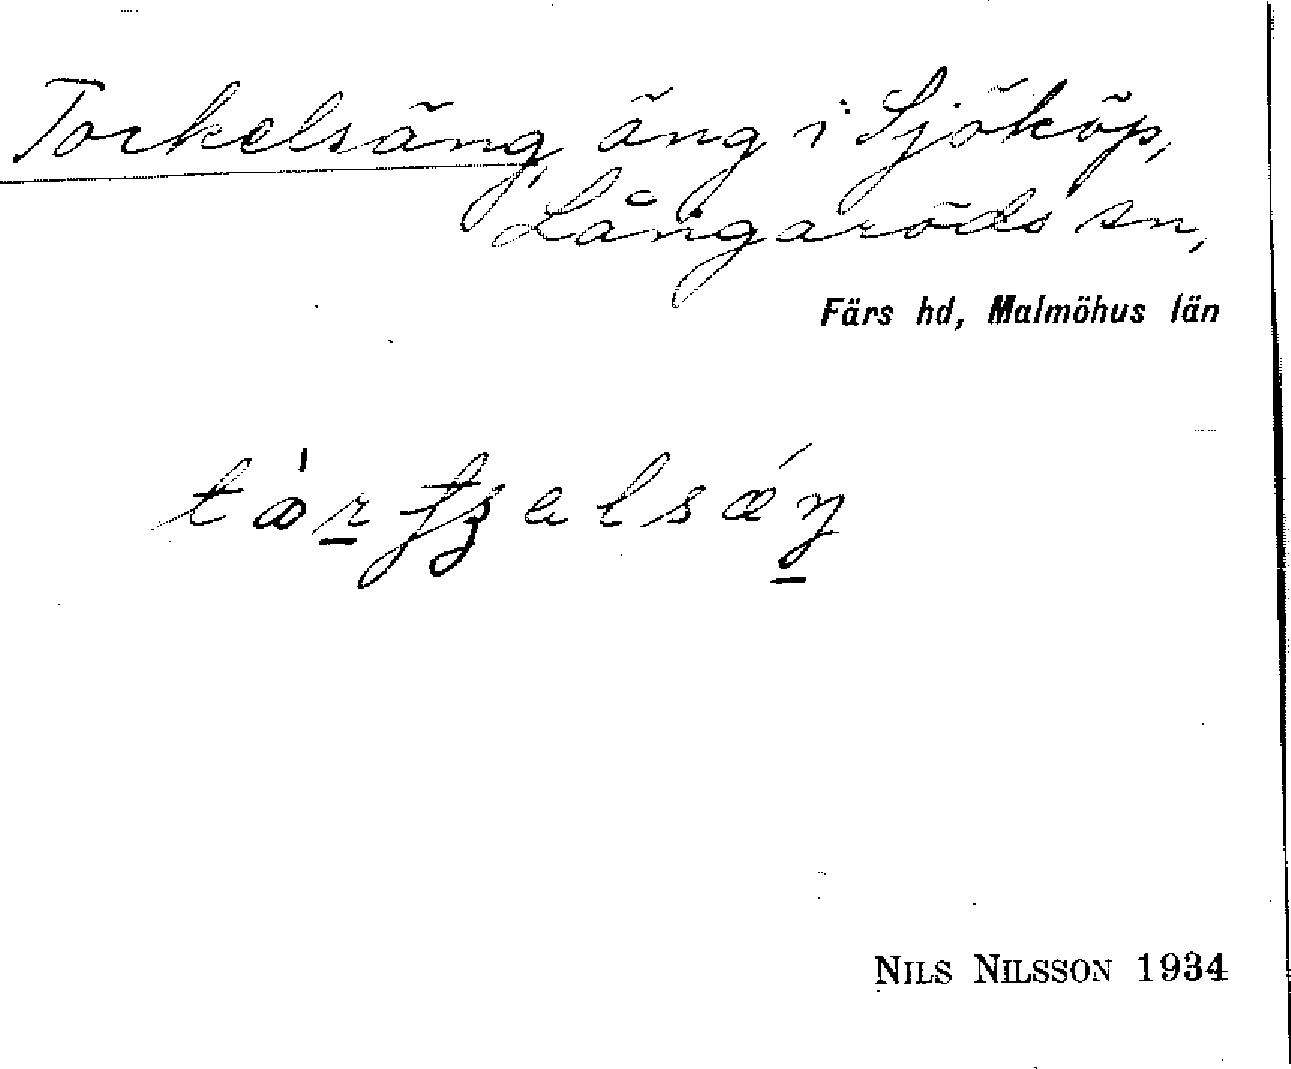 Torkelsäng äng i Sjököp,
Långaröds sn,
Färs hd, Malmöhus län
NILS NILSSON 1934